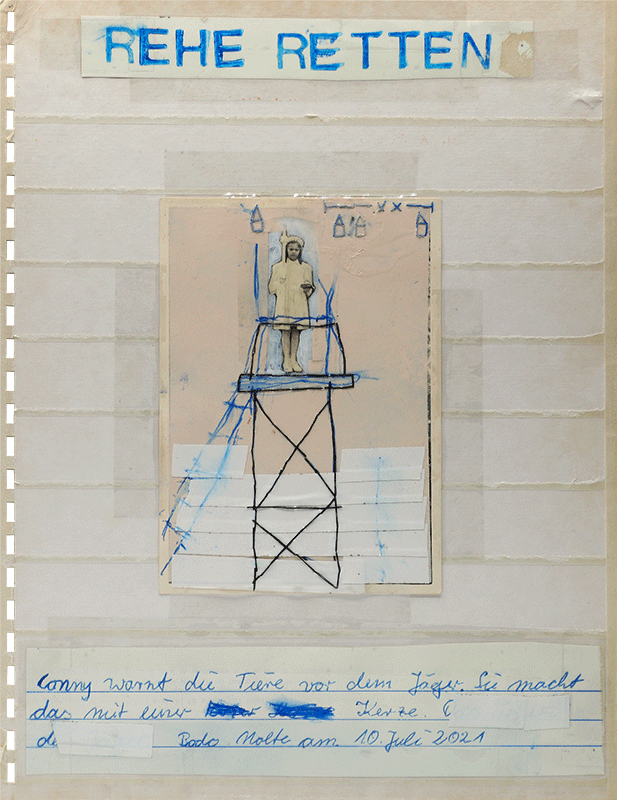 REHE RETTEN
Conny warnt die Tiere vor dem Jäger. Sie macht
das mit einer Kerze.
Bodo Nolte am 10. Juli 2021